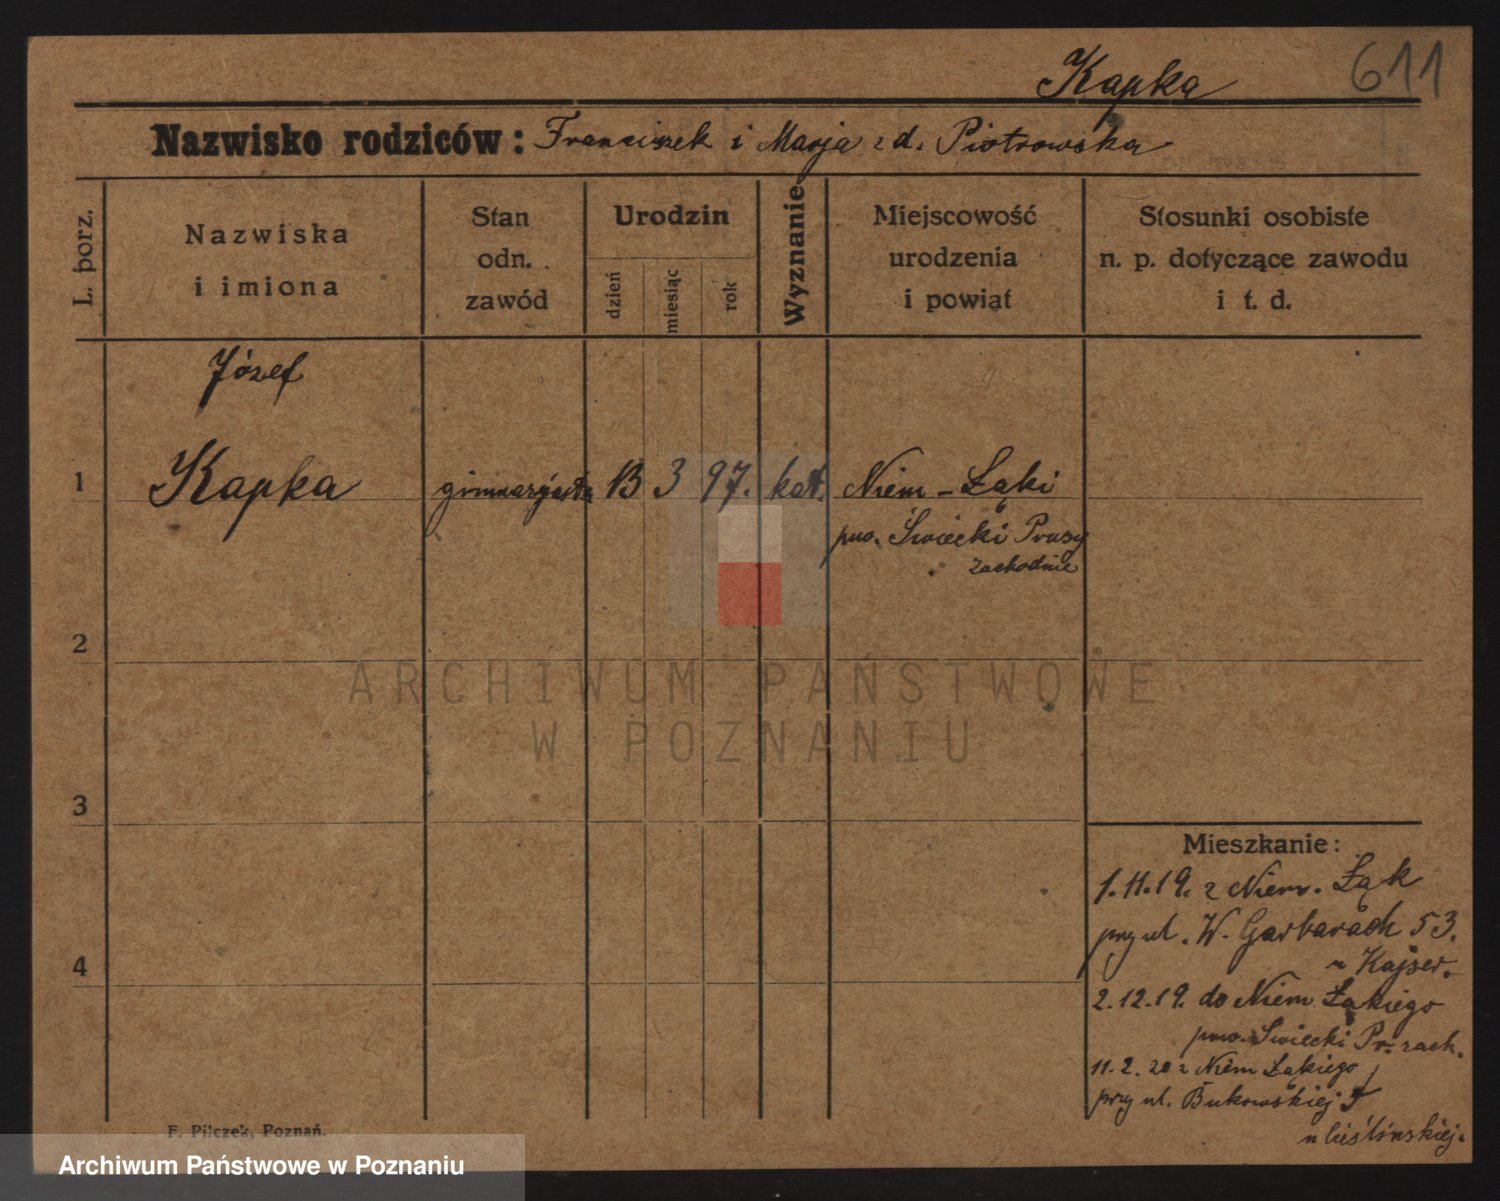 Kapka 611
Nazwisko rodziców: Franciszek i Marja z d. Piotrowska
L. porz.
Nazwiska
i imiona
Stan
odn.
zawód
Urodzin
dzień
miesiąc
rok
Wyznanie
Miejscowość
urodzenia
i powiat
Stosunki osobiste
n. p. dotyczące zawodu
i t. d.
Józef
1 Kapka gimnazjasta 13 3 97. kat. Niem-Łąki
pow. Świecki Prusy
zachodnie
2
3
4
Mieszkanie:
1.11.19. z Niem. Łąk
przy ul. W. Garbarach 53.
u Kajser.
2.12.19. do Niem. Łąkiego
pow. Świecki Pr. zach.
11.2.20 z Niem Łąkiego
przy ul. Bukowskiej
u Cieślińskiej.
F. Pilczek, Poznań.
ARCHIWUM PAŃSTWOWE
W POZNANIU
Archiwum Państwowe w Poznaniu